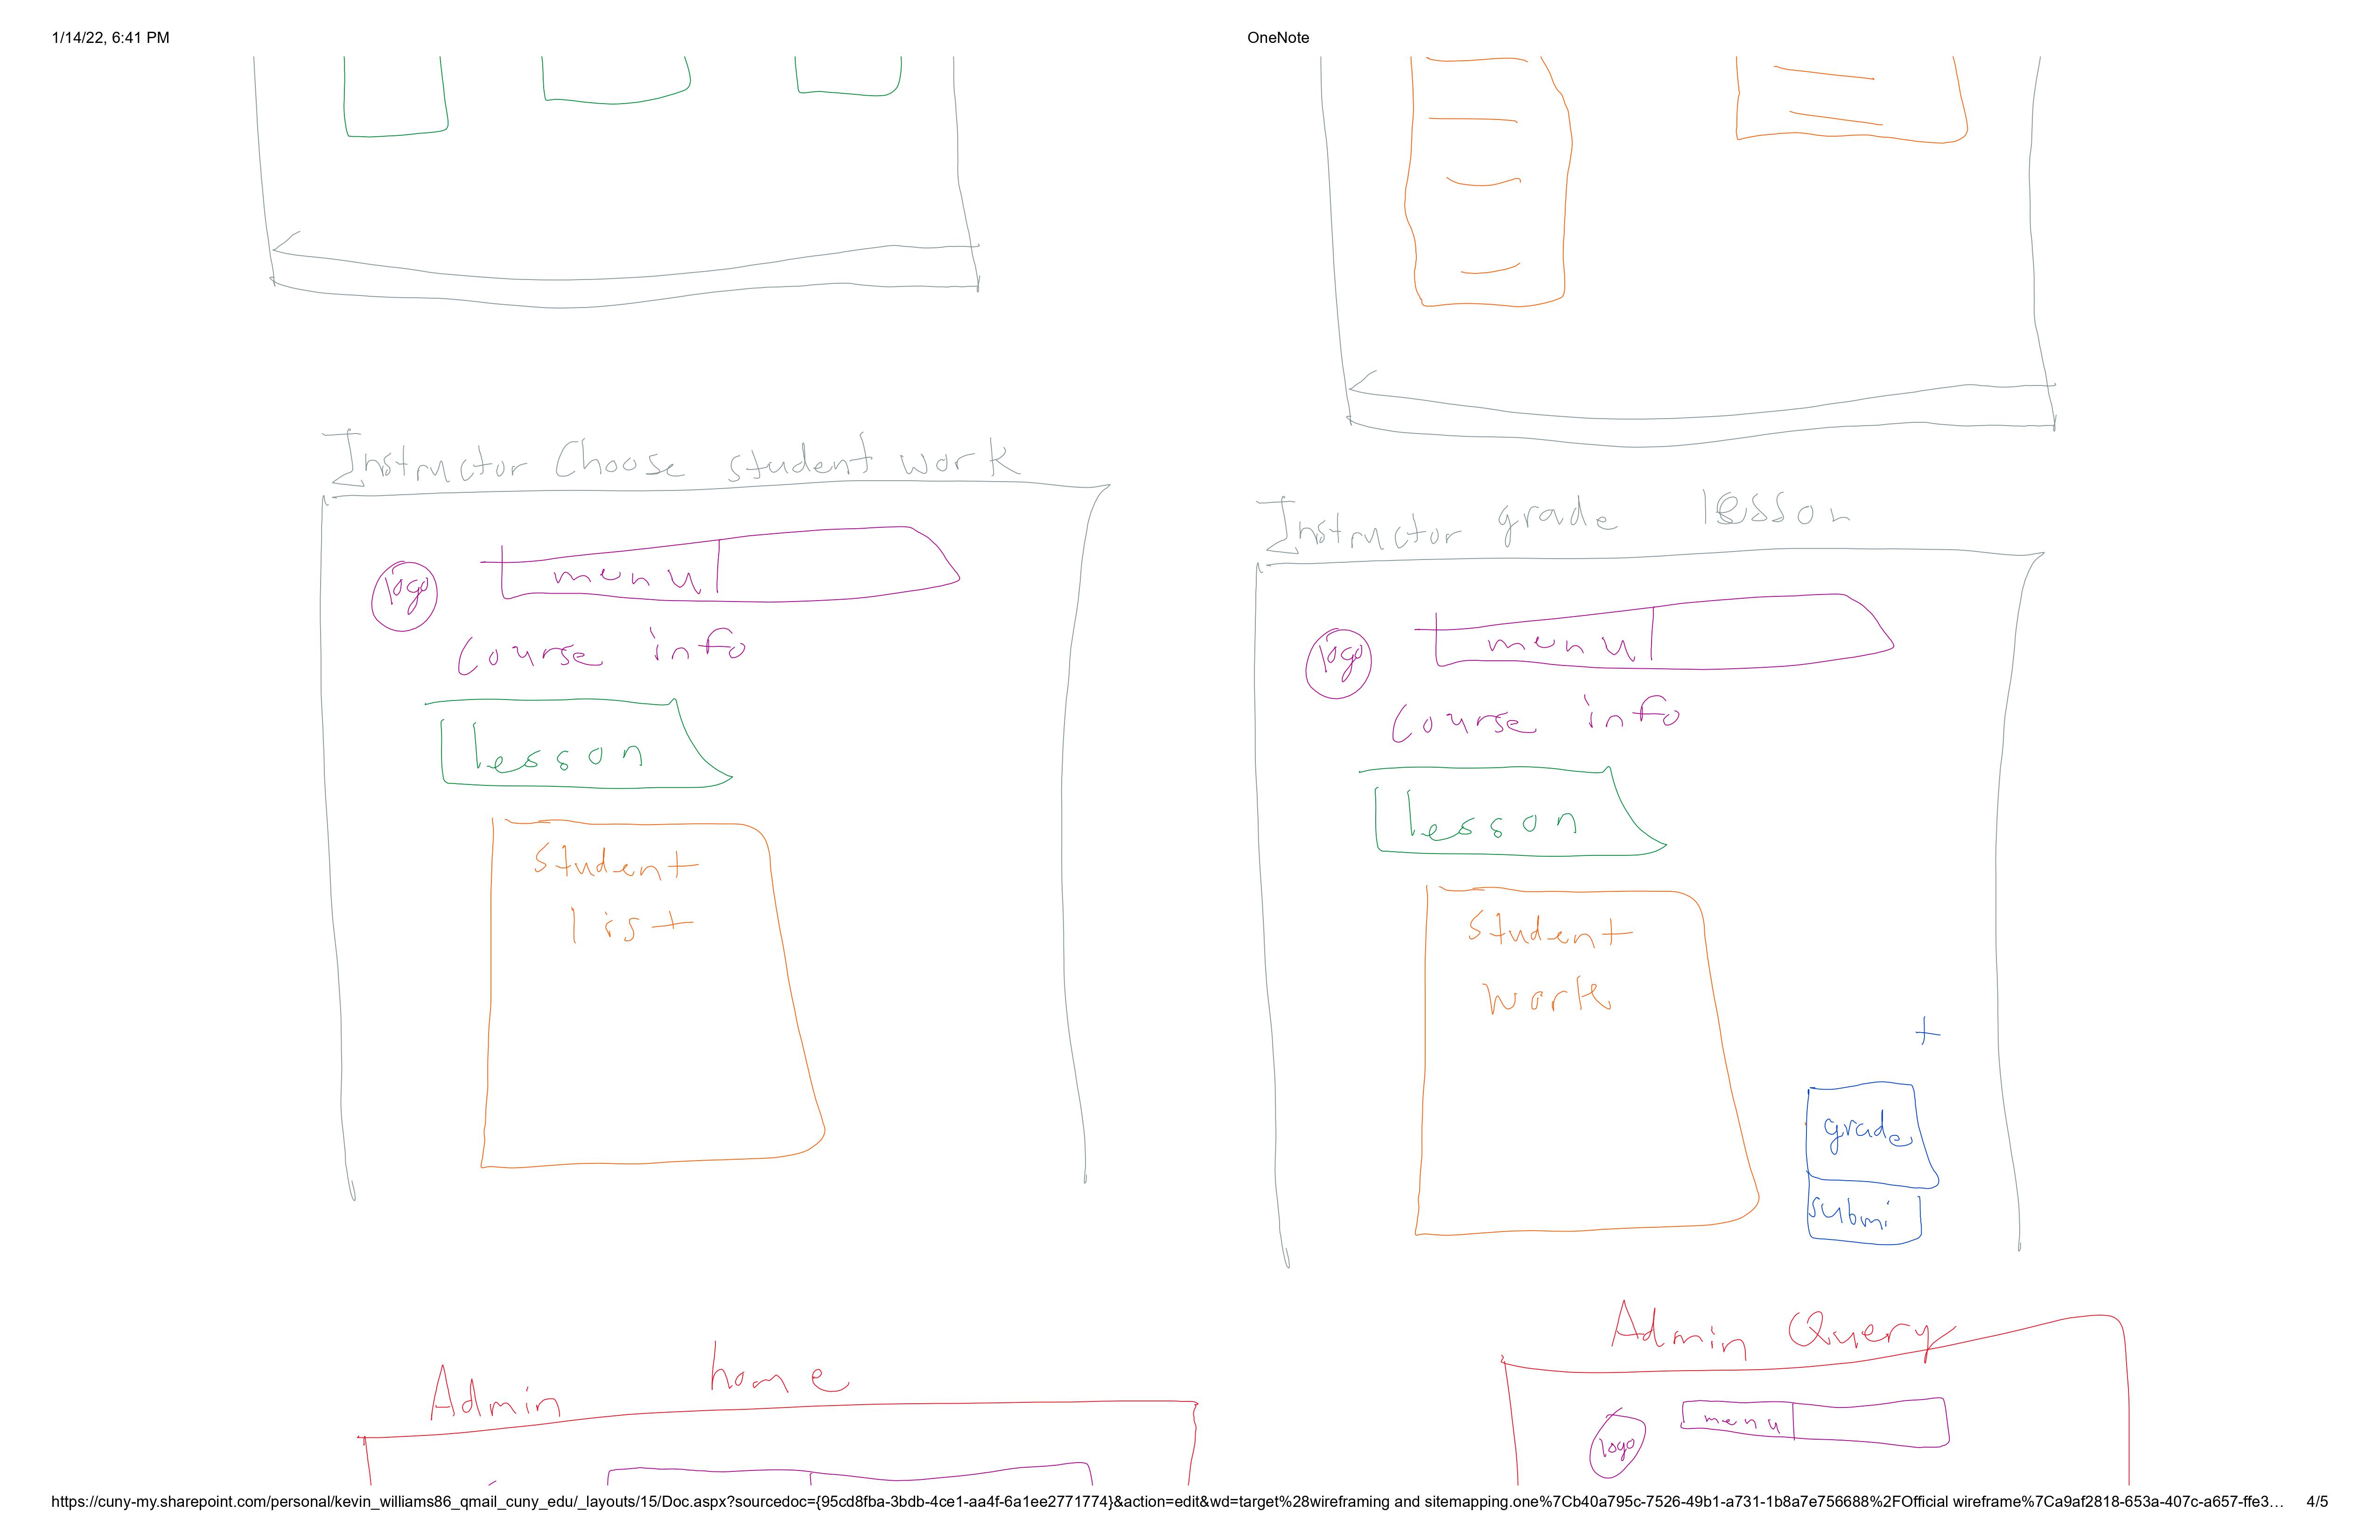 1/14/22, 6:41 PM
OneNote
Instructor Choose student work
logo
menu
Course info
lesson
student
list
Instructor grade lesson
logo
menu
Course info
lesson
student
work
+
grade
submi
Admin home
Admin Query
logo
menu
https://cuny-my.sharepoint.com/personal/kevin_williams86_qmail_cuny_edu/_layouts/15/Doc.aspx?sourcedoc={95cd8fba-3bdb-4ce1-aa4f-6a1ee2771774}&action=edit&wd=target%28wireframing and sitemapping.one%7Cb40a795c-7526-49b1-a731-1b8a7e756688%2FOfficial wireframe%7Ca9af2818-653a-407c-a657-ffe3…
4/5